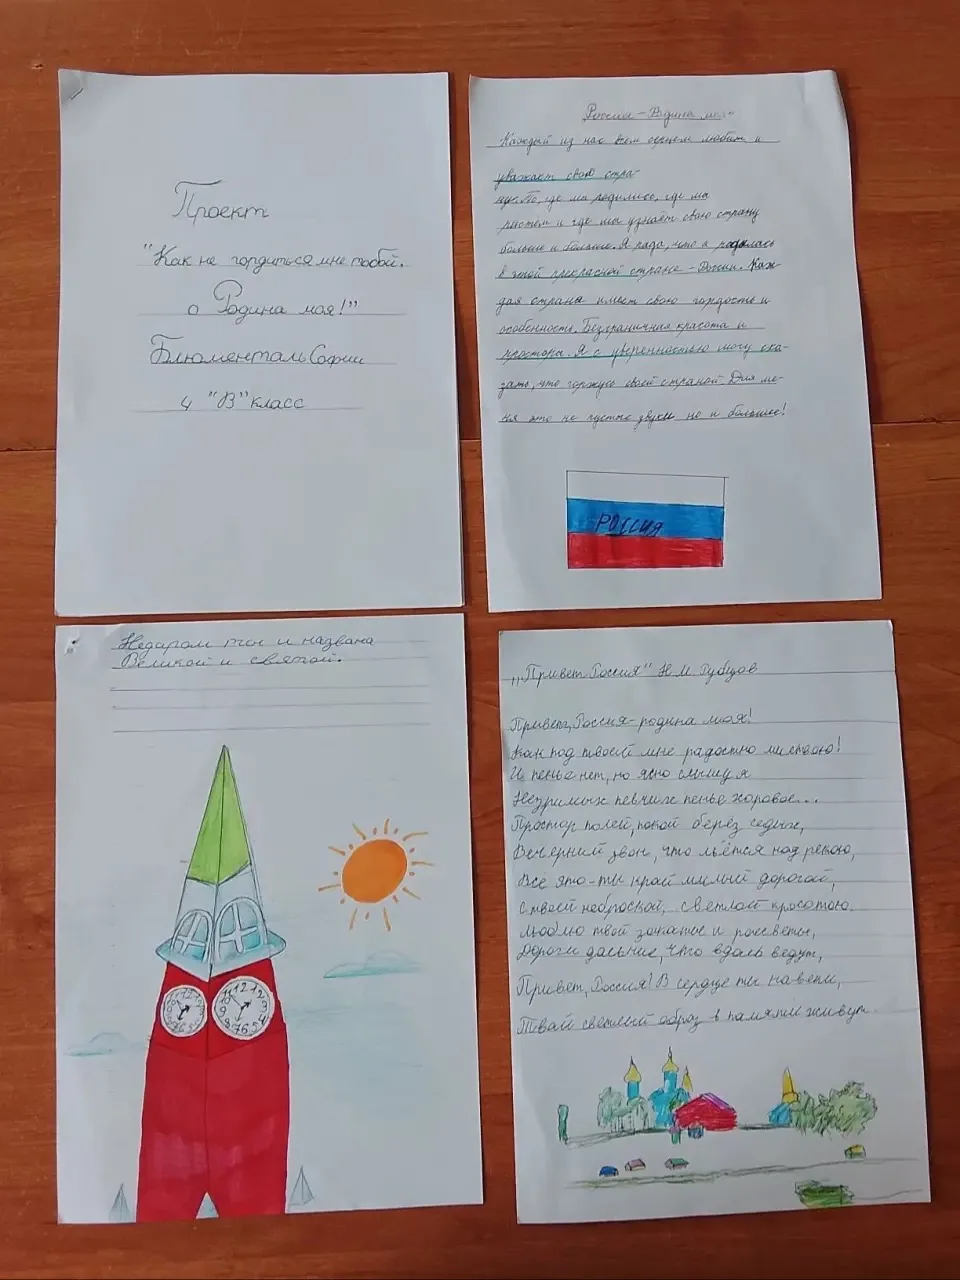 Проект
"Как не гордиться мне тобой.
о Родина моя!"
Блюменталь Софии
4 "В" класс
„Россия - Родина моя"
Каждый из нас всем сердцем любит и
уважает свою стра-
ну. То, где мы родились, где мы
растём и где мы узнаём свою страну
больше и больше. Я рада, что я родилась
в этой прекрасной стране -
Каж-
дая страна имеет свою гордость и
особенность. Безграничная красота и
простора. Я с уверенностью могу ска-
зать, что горжусь своей страной. Для ме-
ня это не пустые звуки но и большее!
РОССИЯ
Недаром ты и названа
Великой и святой.
12 1 2 3 4 5 6 7 8 9 10 11
„Привет, Россия" Н.М. Рубцов
Привет, Россия - родина моя!
Как под твоей мне радостно листвою!
И пенья нет, но ясно слышу я
Незримых певчих пенье хоровое...
Простор полей, покой берёз седых,
Вечерний звон, что льётся над рекою,
Всё это - ты край милый дорогой,
С твоей неброской, светлой красотою.
Люблю твои закаты и рассветы,
Дороги дальние, что вдаль ведут,
Привет, Россия! В сердце ты навеки,
Твой светлый образ в памяти живут.